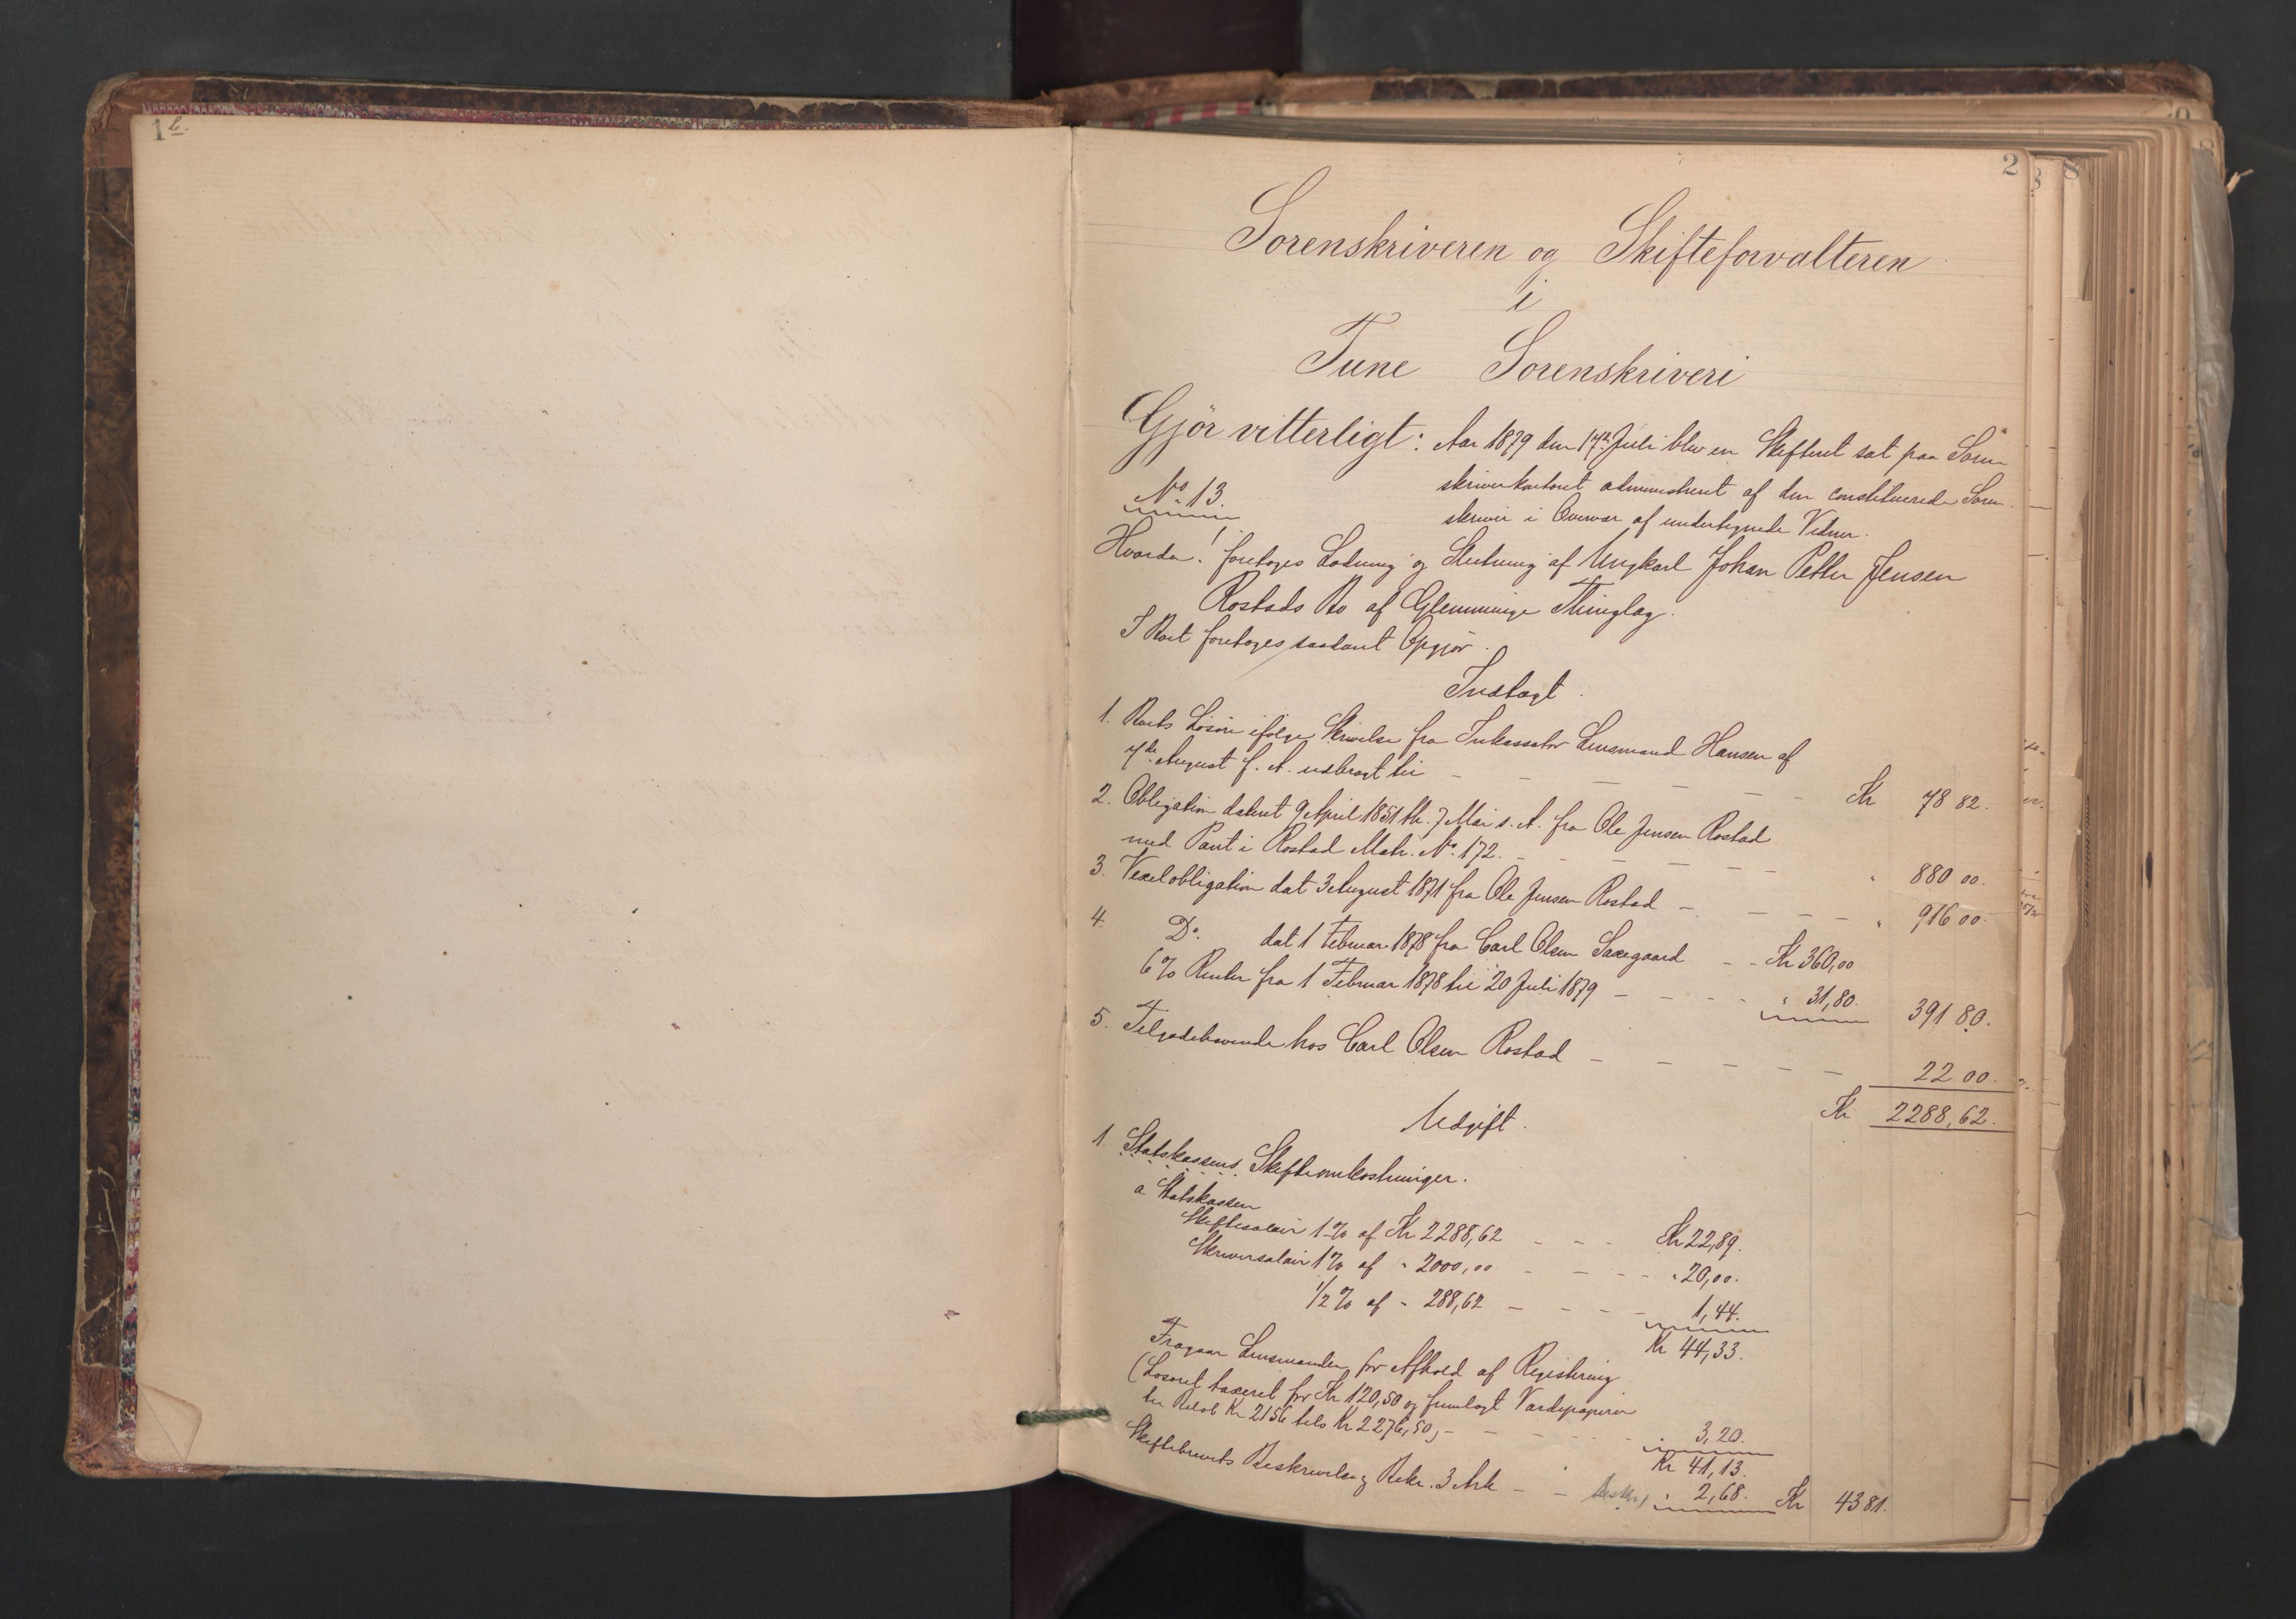 1 b.
2
Sorenskriveren og Skifteforvalteren
i
Tune Sorenskriveri
Gjör vitterligt: Aar 1879 den 17de Juli blev en Skifteret sat paa Soren-
skriverkontoret administreret af den constituerede Soren-
skriver i Overvær af undertegnede Vidner.
No 13.
Hvorda! foretoges Lodning og Slutning af Ungkarl Johan Petter Jensen
Rostads Bo af Glemminge Thinglag.
I Boet foretoges saadant Opgjør.
Indtægt.
1. Boets Løsøre ifølge Skrivelse fra Inkassator Lensmand Hansen af
7de August f. A. udbragt til - - - - - - Kr 78 82.
2. Obligation dateret 9 April 1851 th. 7 Mai s. A. fra Ole Jensen Rostad
med Pant i Rostad Matr. No 172. - - - - - - " 880 00.
3. Vexelobligation dat 3 August 1871 fra Ole Jensen Rostad - - - - " 916 00.
4. Do. dat 1 Februar 1878 fra Carl Olsen Saxegaard - - Kr 360,00
6 % Renter fra 1 Februar 1878 til 20 Juli 1879 - - - - " 31,80. 391 80.
5. Tilgodehavende hos Carl Olsen Rostad - - - - - - 22 00.
Kr 2288,62.
Udgift.
1. Statskassens Skifteomkostninger.
a Statskassen
Skiftesalair 1 % af Kr 2288,62 - - - Kr 22,89.
Skriversalair 1 % af " 2000,00 - - - - " 20,00.
1/2 % af " 288,62 - - - - 1,44.
Kr 44,33.
Fragaar Lensmanden for Afhold af Registrering
(Løsøret taxeret for Kr 120,50 og fremlagt Værdipapirer
til Beløb Kr 2156 tils Kr 2276,50,- - - - - - 3,20.
Kr 41,13.
Skiftebrevets Beskrivelse og Bekr. 3 Ark - - " 2,68. Kr 43 81.